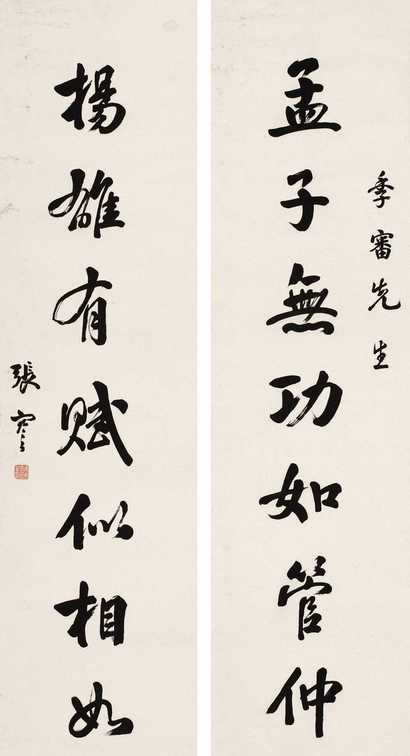 季審先生
孟子無功如管仲
楊雄有賦似相如
張謇